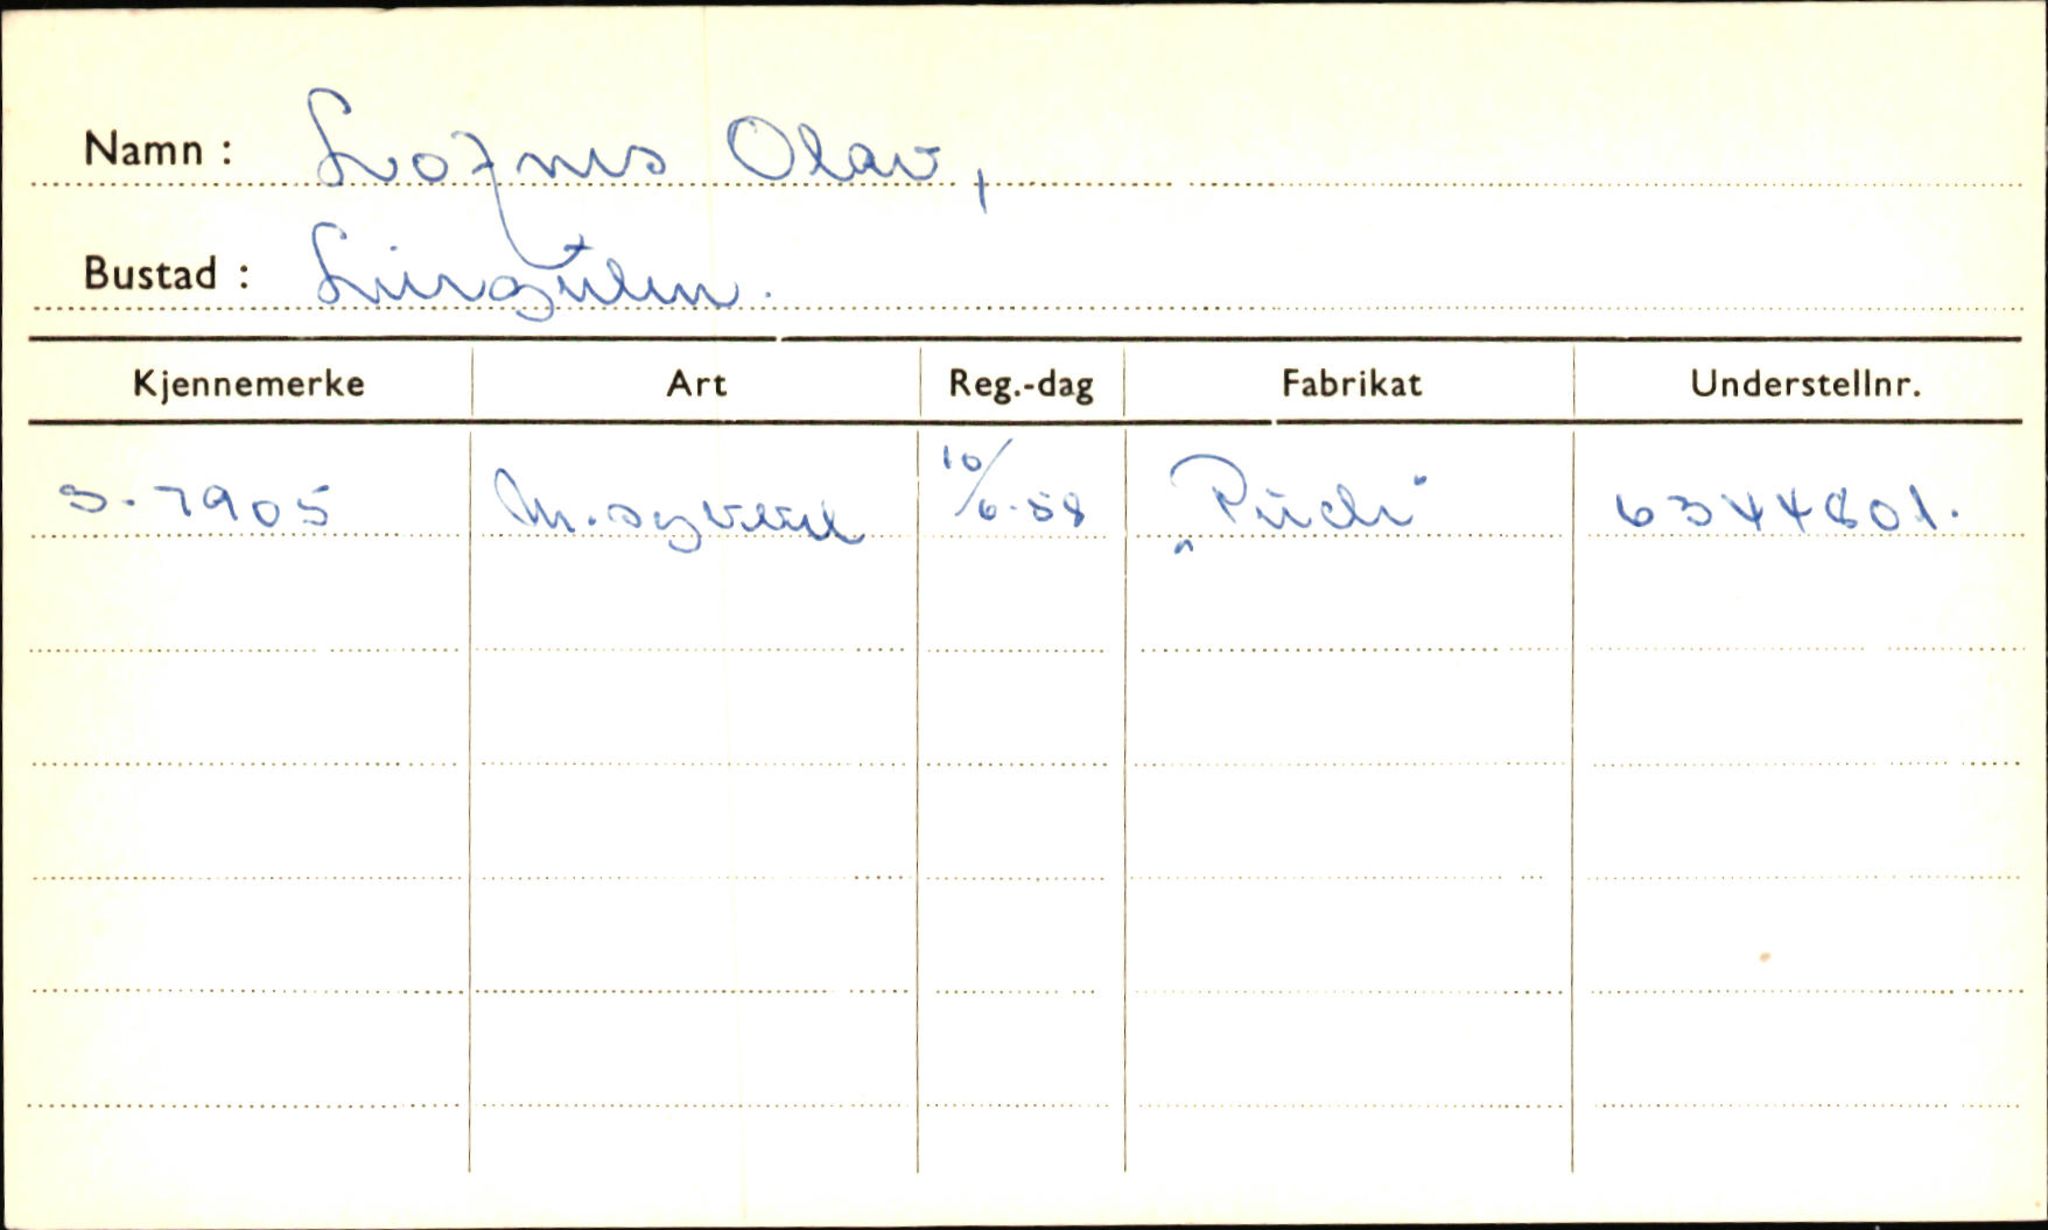 Namn : Lofnes Olav,
Bustad :
Kjennemerke Art Reg.-dag Fabrikat Understellnr.
S-7905 M.sykkel 10/6-58 „Puch" 6344801.